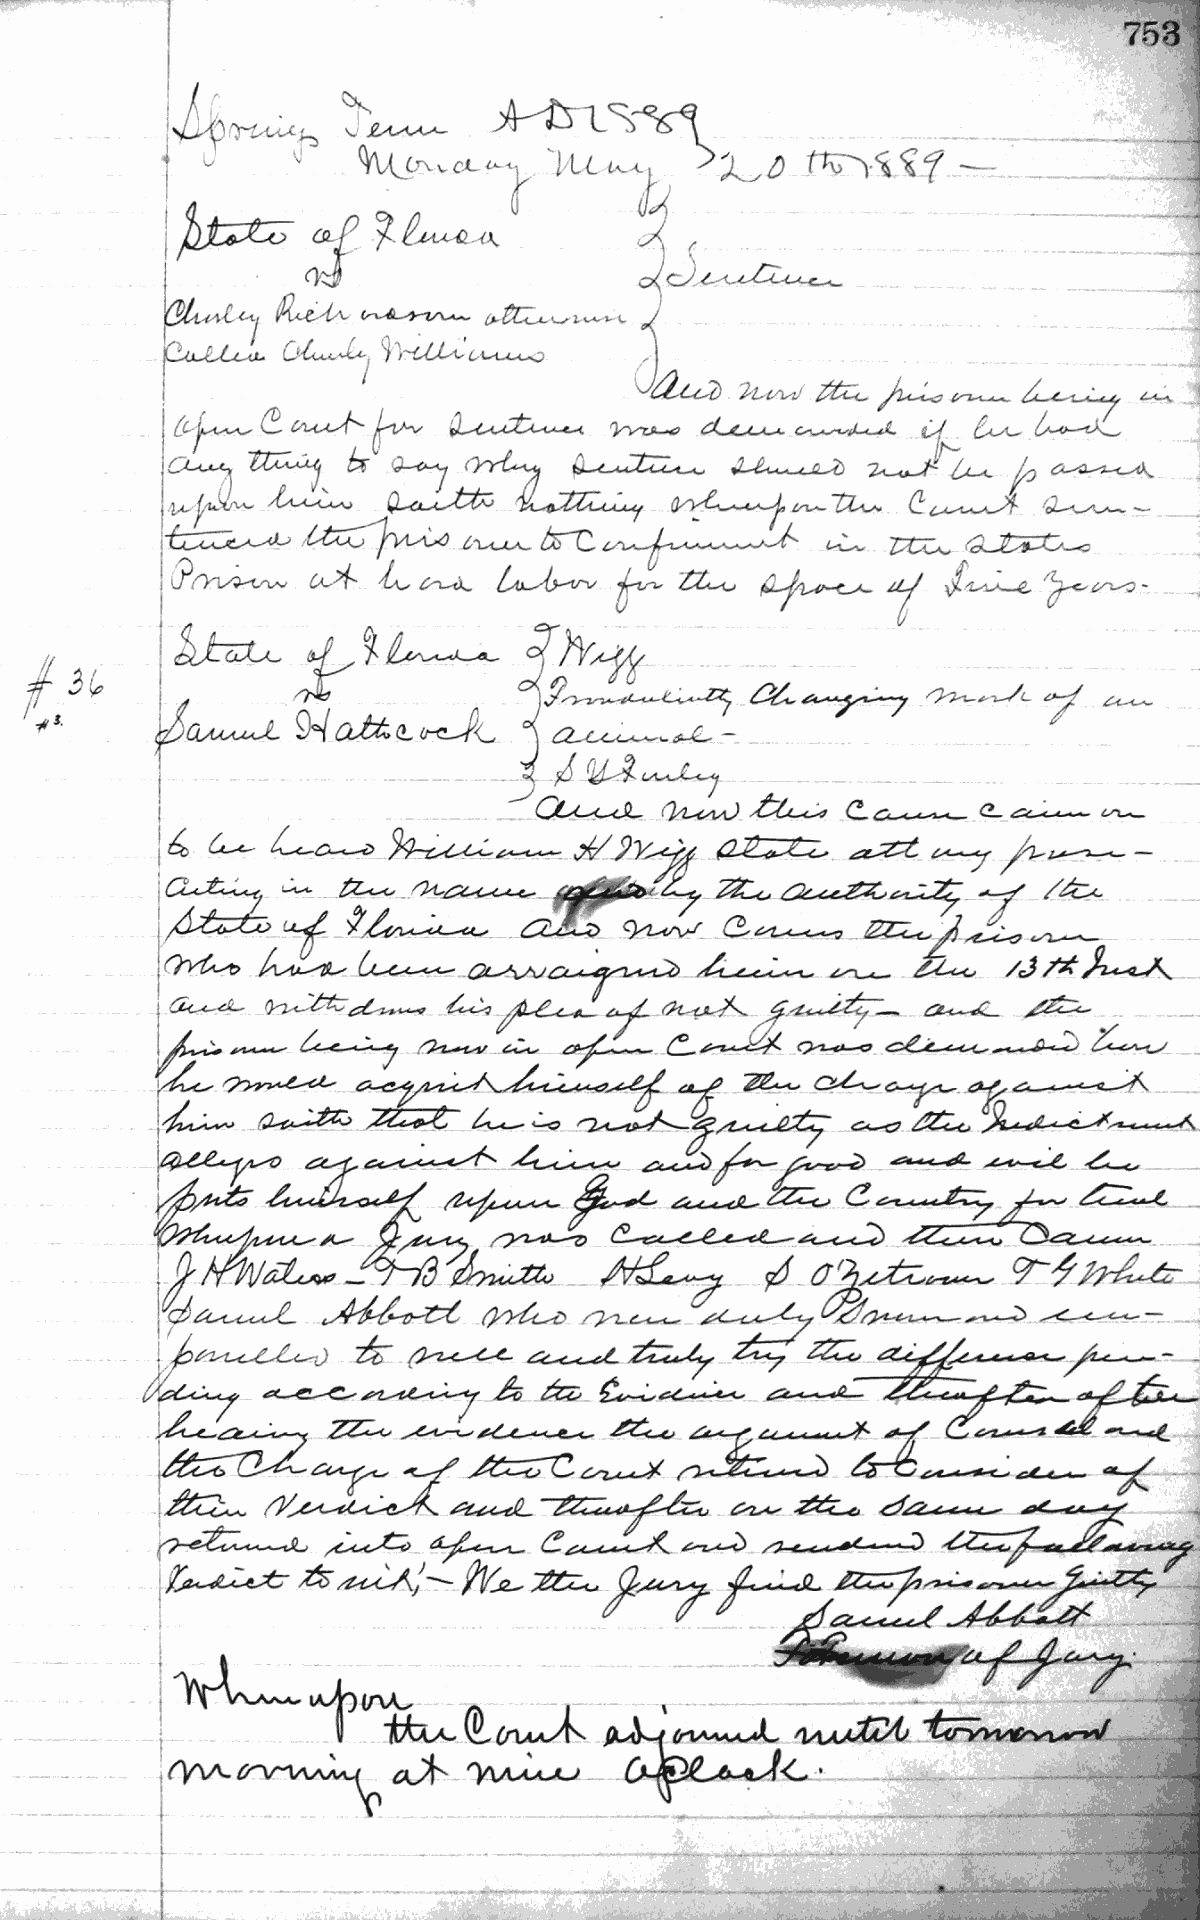 753
Spring Term AD 1889
Monday May 20th 1889 —
State of Florida
vs
Sentence
Charley Richardson otherwise
Called Charley Williams
And now the prisoner being in
open Court for Sentence was demanded if he had
any thing to say why Sentence should not be passed
upon him saith nothing whereupon the Court sen-
tenced the prisoner to Confinement in the States
Prison at hard labor for the space of Five Years.
# 36
#3.
State of Florida
vs
Samuel Hathcock
Wigg
Fraudulently Changing mark of an
animal —
S Y Finley
And now this Cause Came on
to be heard William H Wigg State att ony prose-
cuting in the name and by the authority of the
State of Florida and now Comes the prisoner
who had been arraigned herein on the 13th Inst
and withdraws his plea of not guilty — and the
prisoner being now in open Court was demanded how
he would acquit himself of the charge against
him saith that he is not guilty as the Indictment
alleges against him and for good and evil he
puts himself upon God and the Country for trial
Whereupon a Jury was Called and then Came
J H Waters — T B Smith H Levy S O Zetrouer T G White
Samuel Abbott who were duly Sworn and em-
panelled to well and truly try the difference pen-
ding according to the Evidence and thereafter after
hearing the evidence the argument of Counsel and
the Charge of the Court retired to Consider of
their Verdict and thereafter on the same day
returned into open Court and rendered the following
Verdict to wit; — We the Jury find the prisoner Guilty
Samuel Abbott
Foreman of Jury.
Whereupon
the Court adjourned until tomorrow
morning at nine O'Clock.